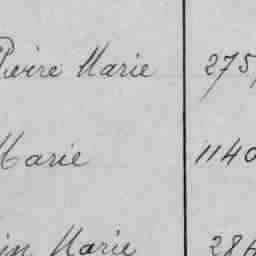 Pierre Marie 275
Marie 1140
in Marie 284